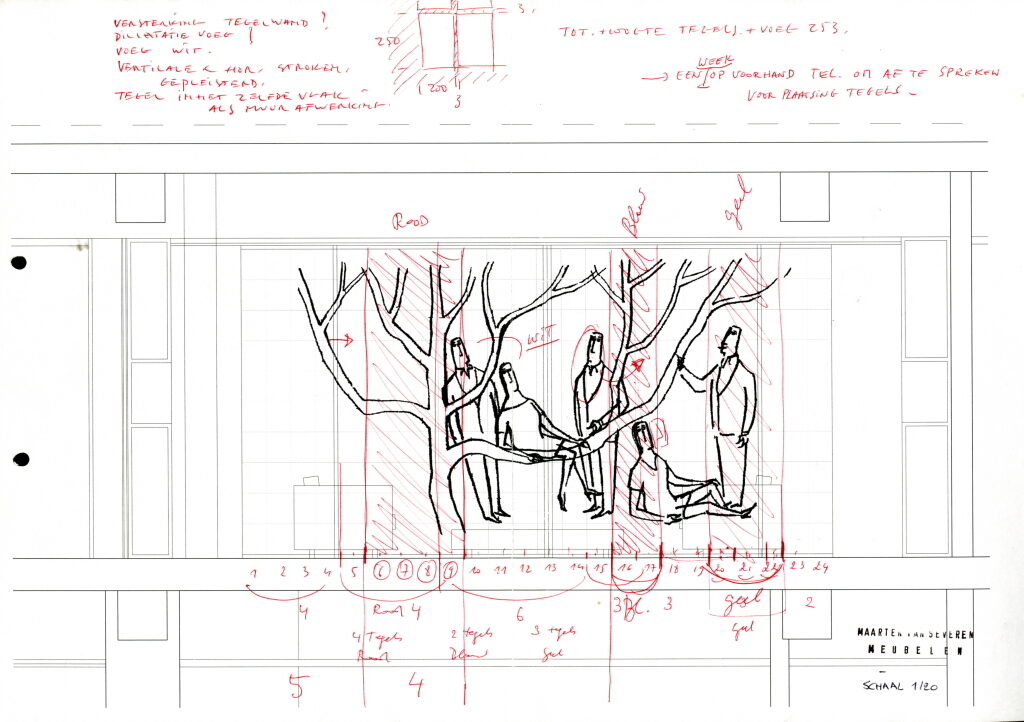 VERSTERKING TEGELWAND?
DILLATATIE VOEG!
VOEG WIT.
VERTICALE & HOR. STROKEN,
GEPLEISTERD.
TEGEL IN HET ZELFDE VLAK
ALS MUUR AFWERKING.
250
= 3.
200
3
TOT. HOOGTE TEGELS + VOEG 253.
WEEK
→ EEN OP VOORHAND TEL. OM AF TE SPREKEN
VOOR PLAATSING TEGELS.
ROOD
Blauw
geel
WIT
1 2 3 4 5 6 7 8 9 10 11 12 13 14 15 16 17 18 19 20 21 22 23 24
4 Rood 4 6 3 Bl. 3 geel 2
geel
4 Tegels
Rood
2 tegels
Blauw
3 tegels
geel
5 4
MAARTEN VAN SEVEREN
MEUBELEN
SCHAAL 1/20